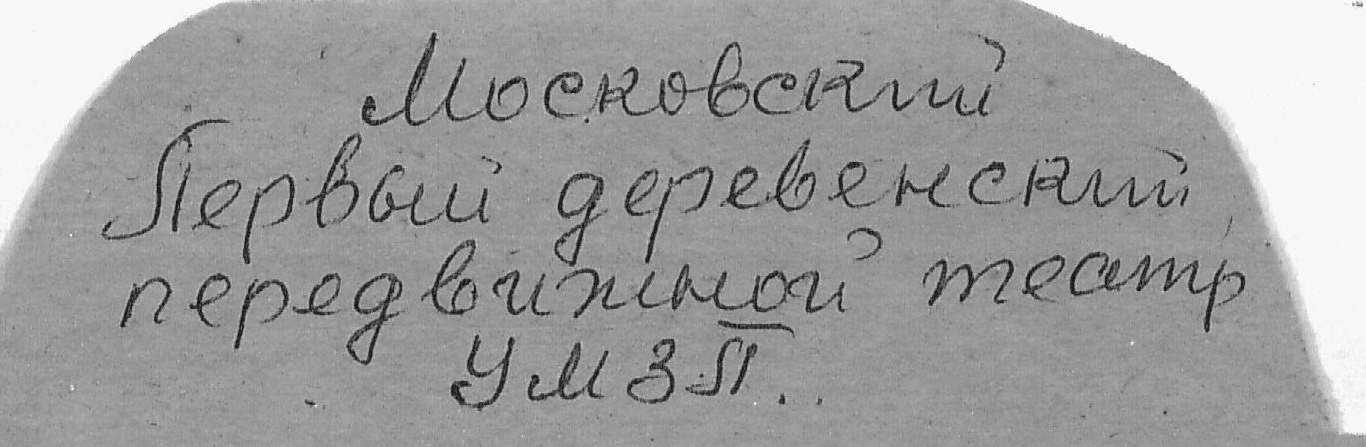 Московский
Первый деревенский
передвижной театр
УМЗП..